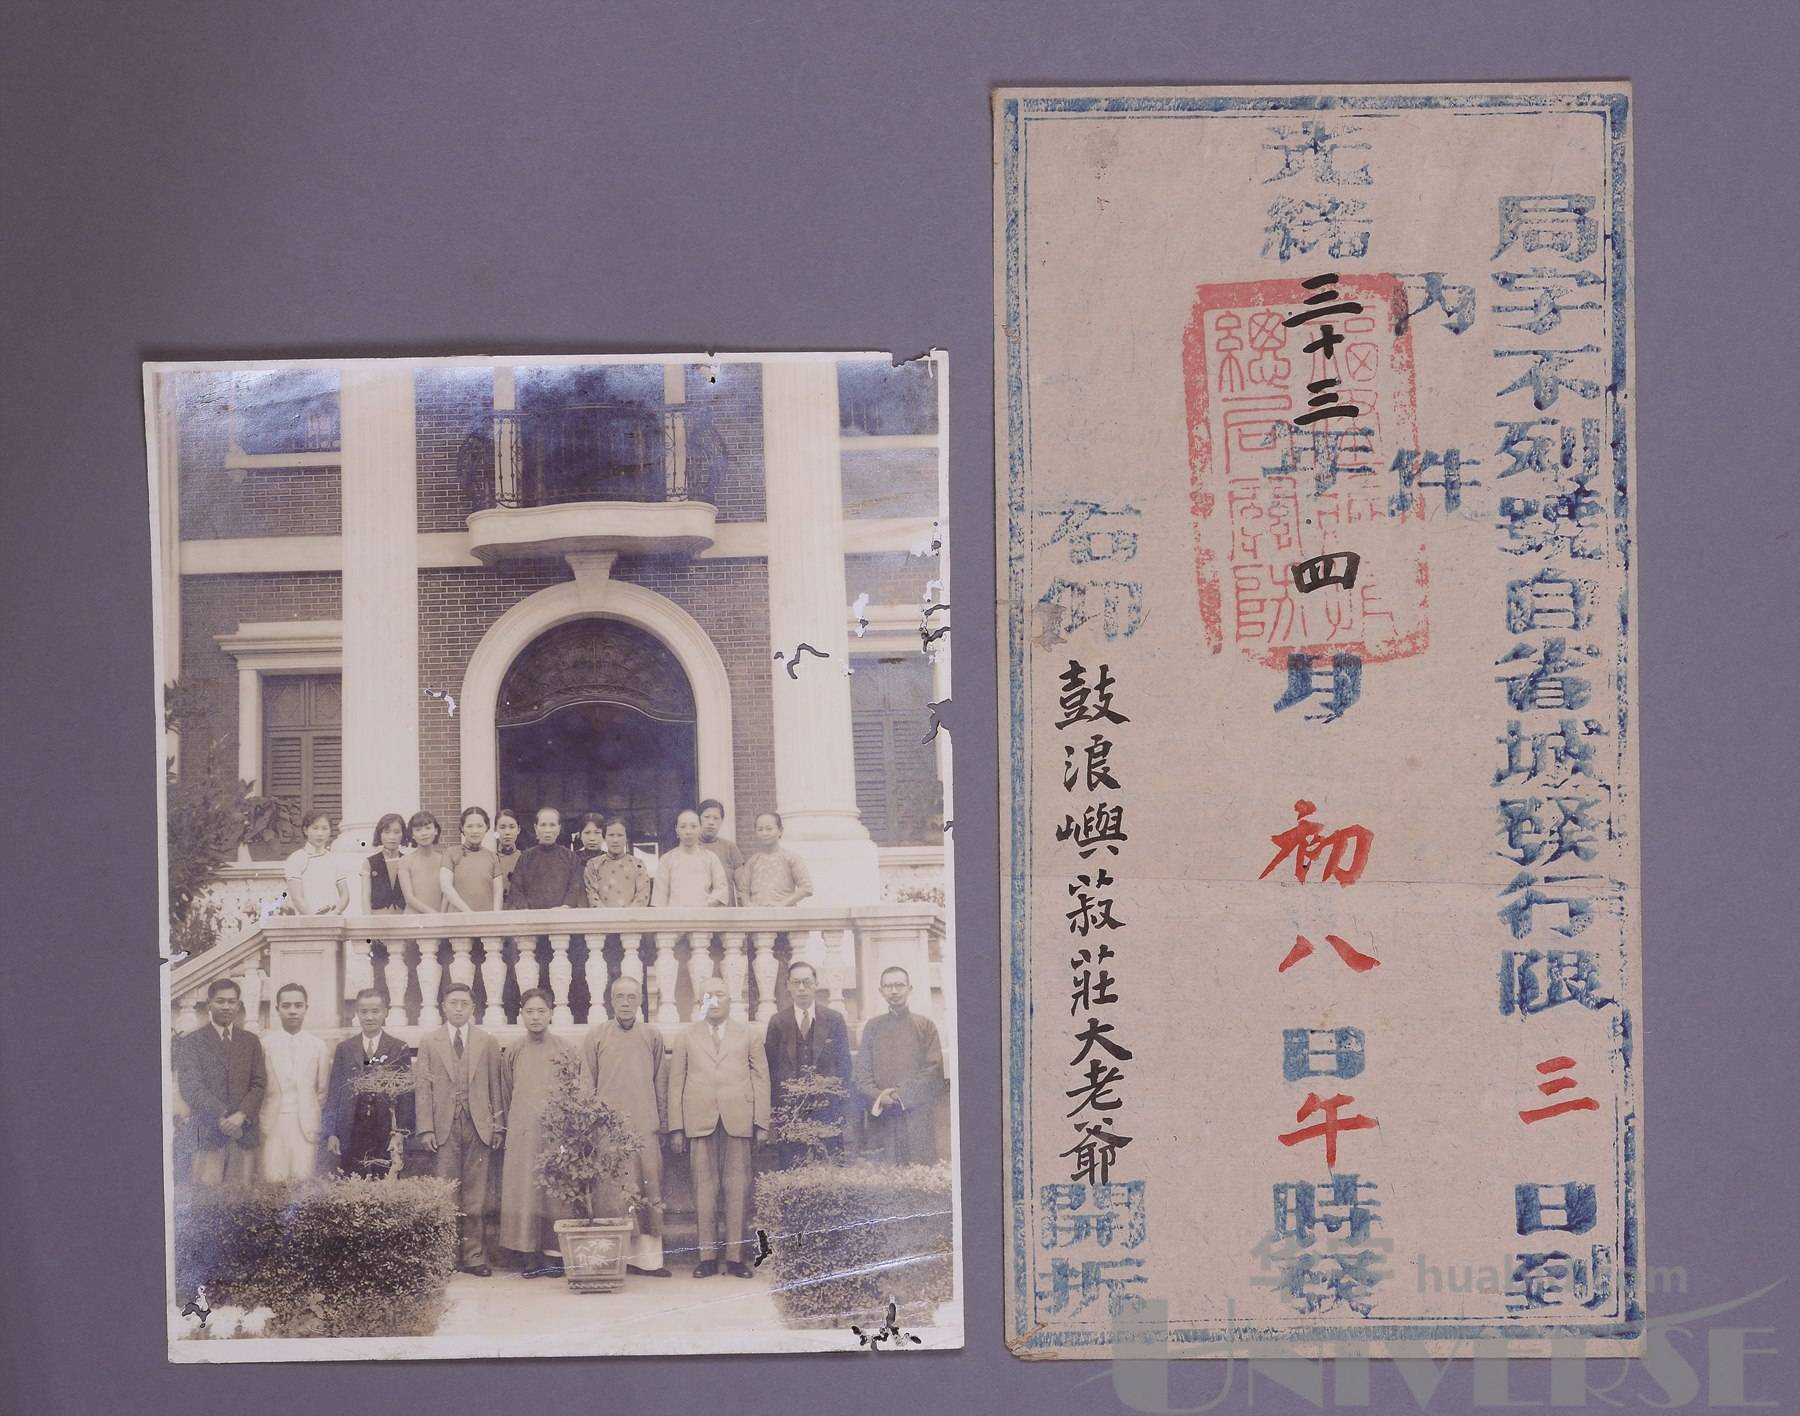 局字不列號自省城發行限三日到
內 件
光緒三十三年四月初八日午時發
右仰鼓浪嶼菽莊大老爺開拆
總局關防
华宇 huabid.com
UNIVERSE